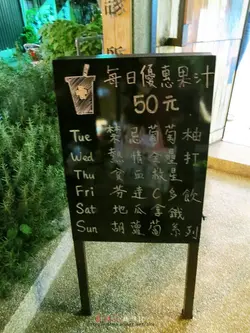 每日優惠果汁
50元
Tue 葉忌葡萄柚
Wed 熱情金桔打
Thu 食血救星
Fri 芬達C多飲
Sat 地瓜拿鐵
Sun 胡蘿蔔系列